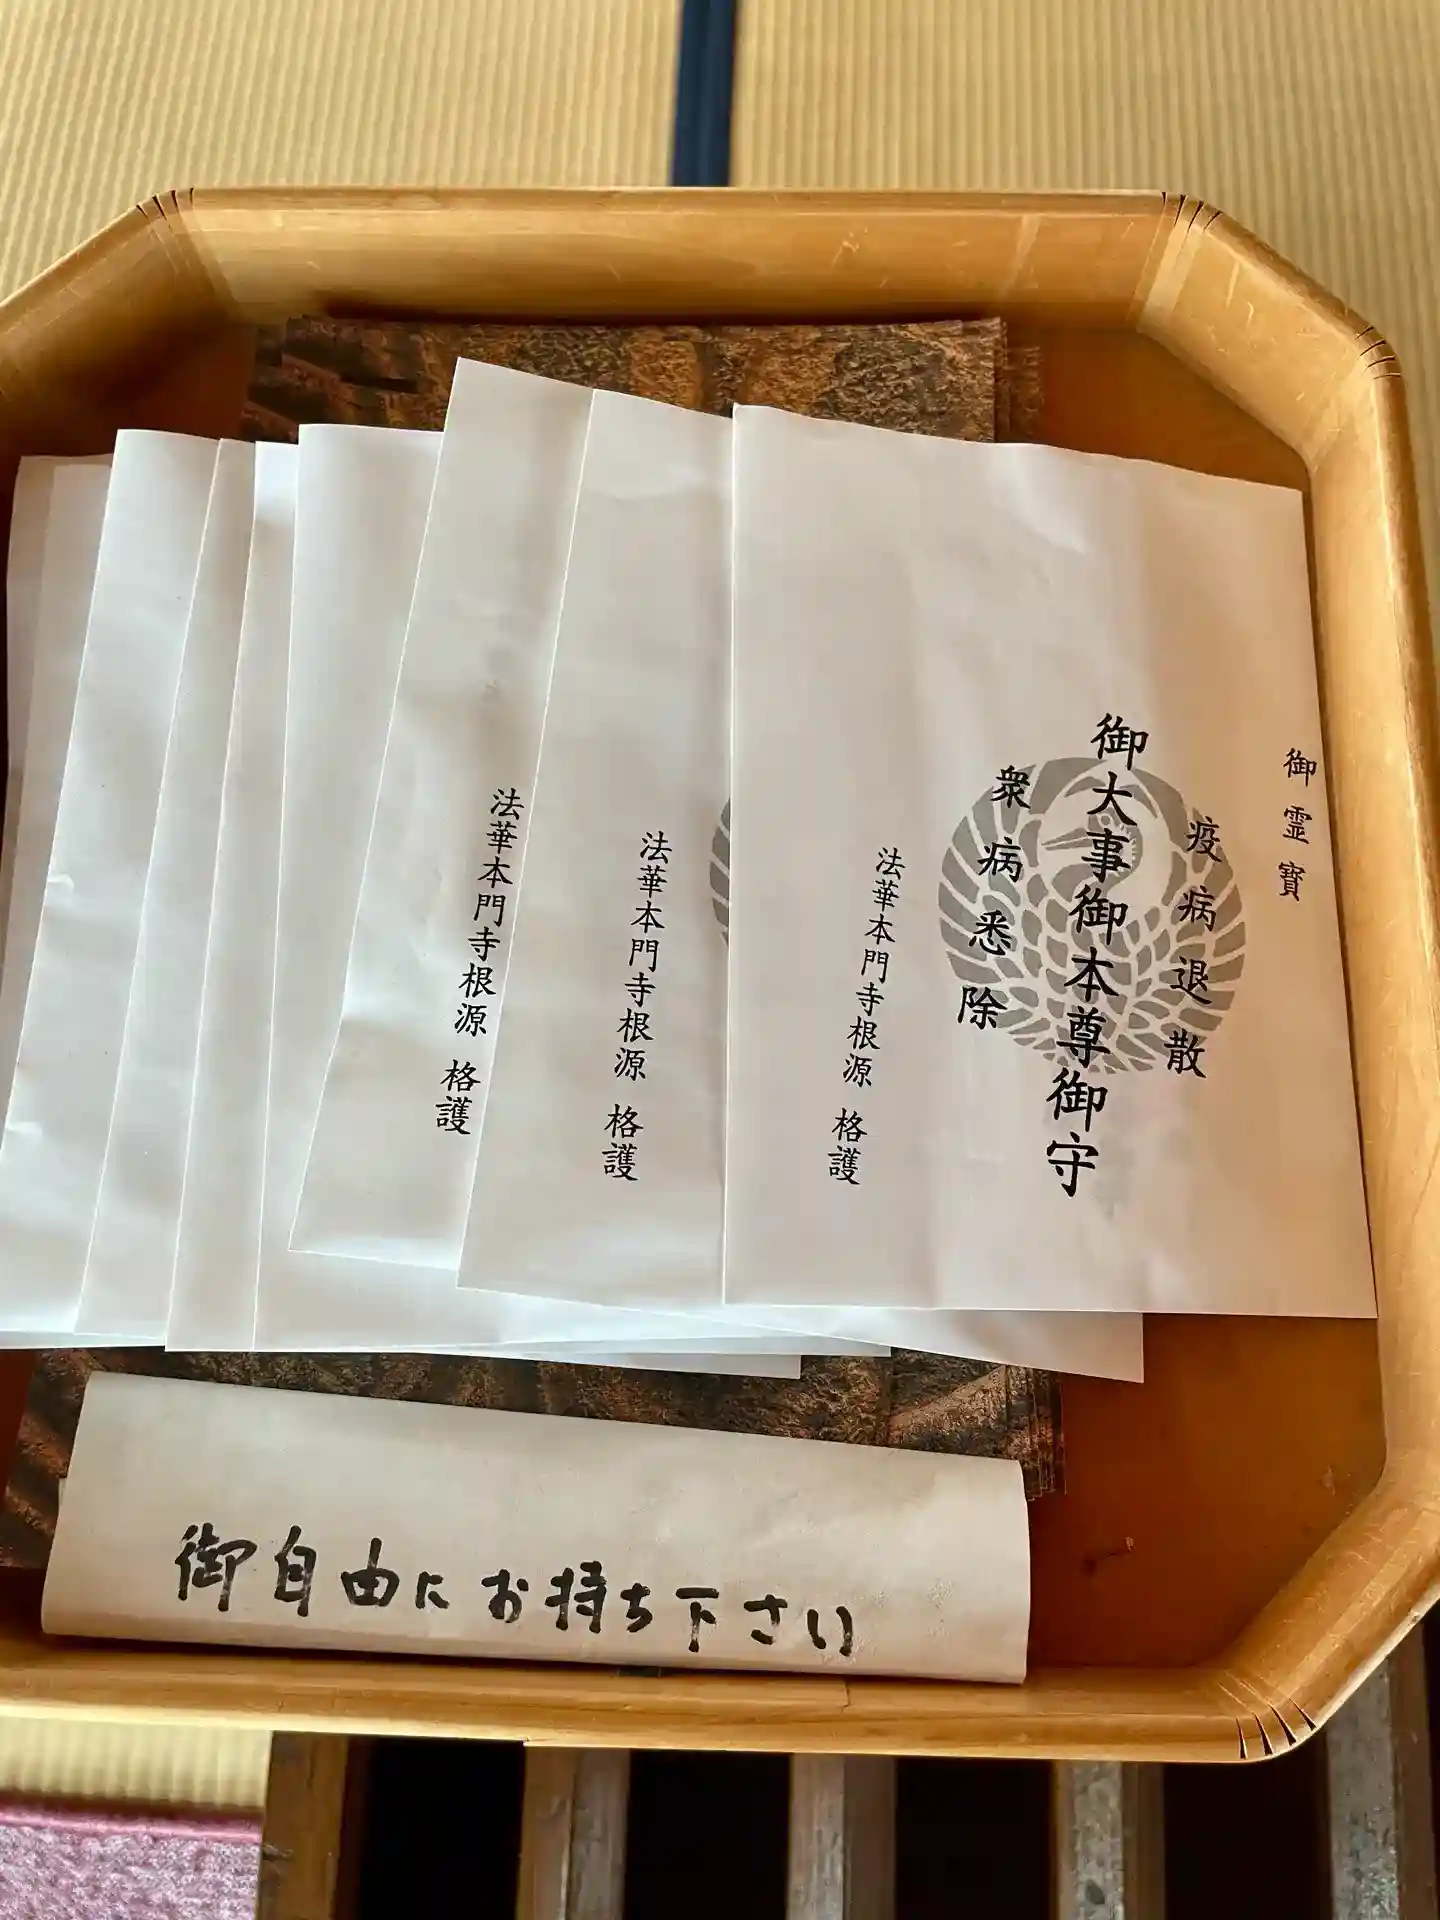 御霊寳
疫病退散
御大事御本尊御守
衆病悉除
法華本門寺根源 格護
法華本門寺根源 格護
法華本門寺根源 格護
御自由にお持ち下さい